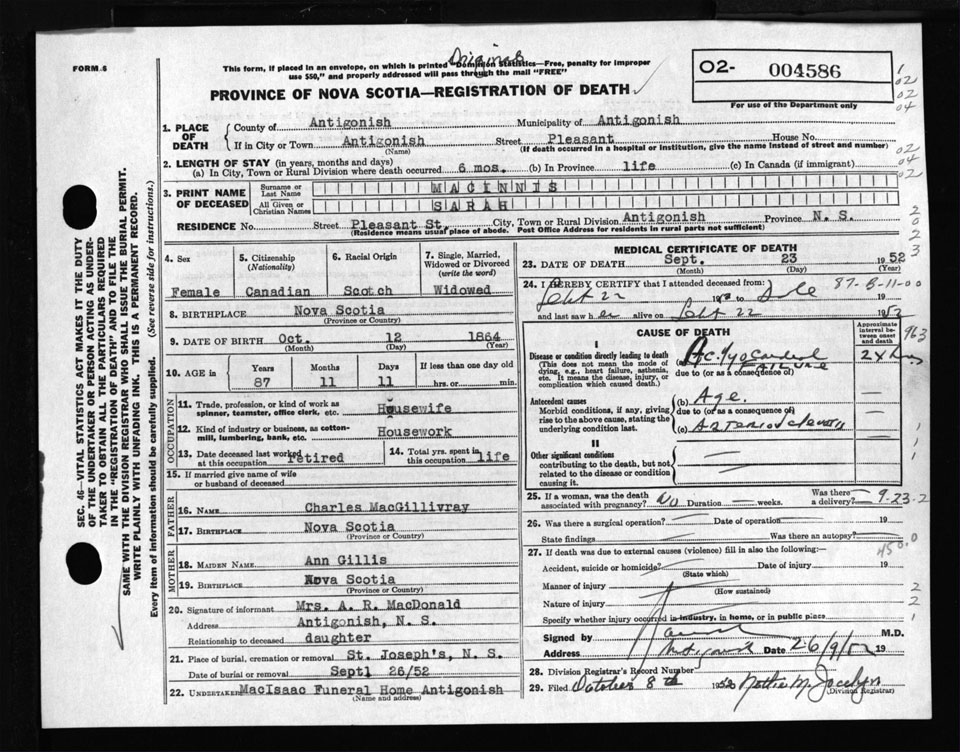 Original
FORM 6
This form, if placed in an envelope, on which is printed "Dominion Statistics—Free, penalty for improper
use $50," and properly addressed will pass through the mail "FREE"
PROVINCE OF NOVA SCOTIA—REGISTRATION OF DEATH
O2- 004586
For use of the Department only
1. PLACE OF DEATH
County of Antigonish Municipality of Antigonish
If in City or Town Antigonish Street Pleasant House No.
(Name) (If death occurred in a hospital or institution, give the name instead of street and number)
2. LENGTH OF STAY (in years, months and days)
(a) In City, Town or Rural Division where death occurred 6 mos. (b) In Province life (c) In Canada (if immigrant)
3. PRINT NAME OF DECEASED
Surname or Last Name MACINNIS
All Given or Christian Names SARAH
RESIDENCE No. Street Pleasant St. City, Town or Rural Division Antigonish Province N. S.
(Residence means usual place of abode. Post Office Address for residents in rural parts not sufficient)
4. Sex
Female
5. Citizenship (Nationality)
Canadian
6. Racial Origin
Scotch
7. Single, Married, Widowed or Divorced (write the word)
Widowed
8. BIRTHPLACE Nova Scotia
(Province or Country)
9. DATE OF BIRTH Oct. 12 1864
(Month) (Day) (Year)
10. AGE in Years Months Days If less than one day old
87 11 11 hrs. or min.
OCCUPATION
11. Trade, profession, or kind of work as
spinner, teamster, office clerk, etc. Housewife
12. Kind of industry or business, as cotton-
mill, lumbering, bank, etc. Housework
13. Date deceased last worked
at this occupation retired
14. Total yrs. spent in
this occupation life
15. If married give name of wife
or husband of deceased
FATHER
16. NAME Charles MacGillivray
17. BIRTHPLACE Nova Scotia
(Province or Country)
MOTHER
18. MAIDEN NAME Ann Gillis
19. BIRTHPLACE Nova Scotia
(Province or Country)
20. Signature of informant Mrs. A. R. MacDonald
Address Antigonish, N. S.
Relationship to deceased daughter
21. Place of burial, cremation or removal St. Joseph's, N. S.
Date of burial or removal Septl 26/52
22. UNDERTAKER MacIsaac Funeral Home Antigonish
(Name and address)
MEDICAL CERTIFICATE OF DEATH
23. DATE OF DEATH Sept. 23 1952
(Month) (Day) (Year)
24. I HEREBY CERTIFY that I attended deceased from: 87-8-11-00
Sept 22 19
and last saw her alive on Sept 22 1952
CAUSE OF DEATH
Approximate interval between onset and death
963
I
Disease or condition directly leading to death
(This does not mean the mode of
dying, e.g., heart failure, asthenia,
etc. It means the disease, injury, or
complication which caused death.)
(a) Ac. Myocardial FAILURE
due to (or as a consequence of)
Antecedent causes
Morbid conditions, if any, giving
rise to the above cause, stating the
underlying condition last.
(b) Age.
due to (or as a consequence of)
(c)
II
Other significant conditions
contributing to the death, but not
related to the disease or condition
causing it.
25. If a woman, was the death
associated with pregnancy? No Duration weeks. Was there a delivery? 9-23-2
26. Was there a surgical operation? Date of operation 19
State findings Was there an autopsy?
27. If death was due to external causes (violence) fill in also the following:—
Accident, suicide or homicide? Date of injury 19
(State which)
Manner of injury
(How sustained)
Nature of injury
Specify whether injury occurred in industry, in home, or in public place
Signed by M.D.
Address Antigonish Date 26/9/52
28. Division Registrar's Record Number
29. Filed October 8th 1952 Nettie M. Jocelyn
(Division Registrar)
SEC. 46—VITAL STATISTICS ACT MAKES IT THE DUTY
OF THE UNDERTAKER OR PERSON ACTING AS UNDER-
TAKER TO OBTAIN ALL THE PARTICULARS REQUIRED
IN THE "REGISTRATION OF DEATH" AND TO FILE THE
SAME WITH THE DIVISION REGISTRAR WHO SHALL ISSUE THE BURIAL PERMIT.
WRITE PLAINLY WITH UNFADING INK. THIS IS A PERMANENT RECORD.
Every item of information should be carefully supplied. (See reverse side for instructions.)